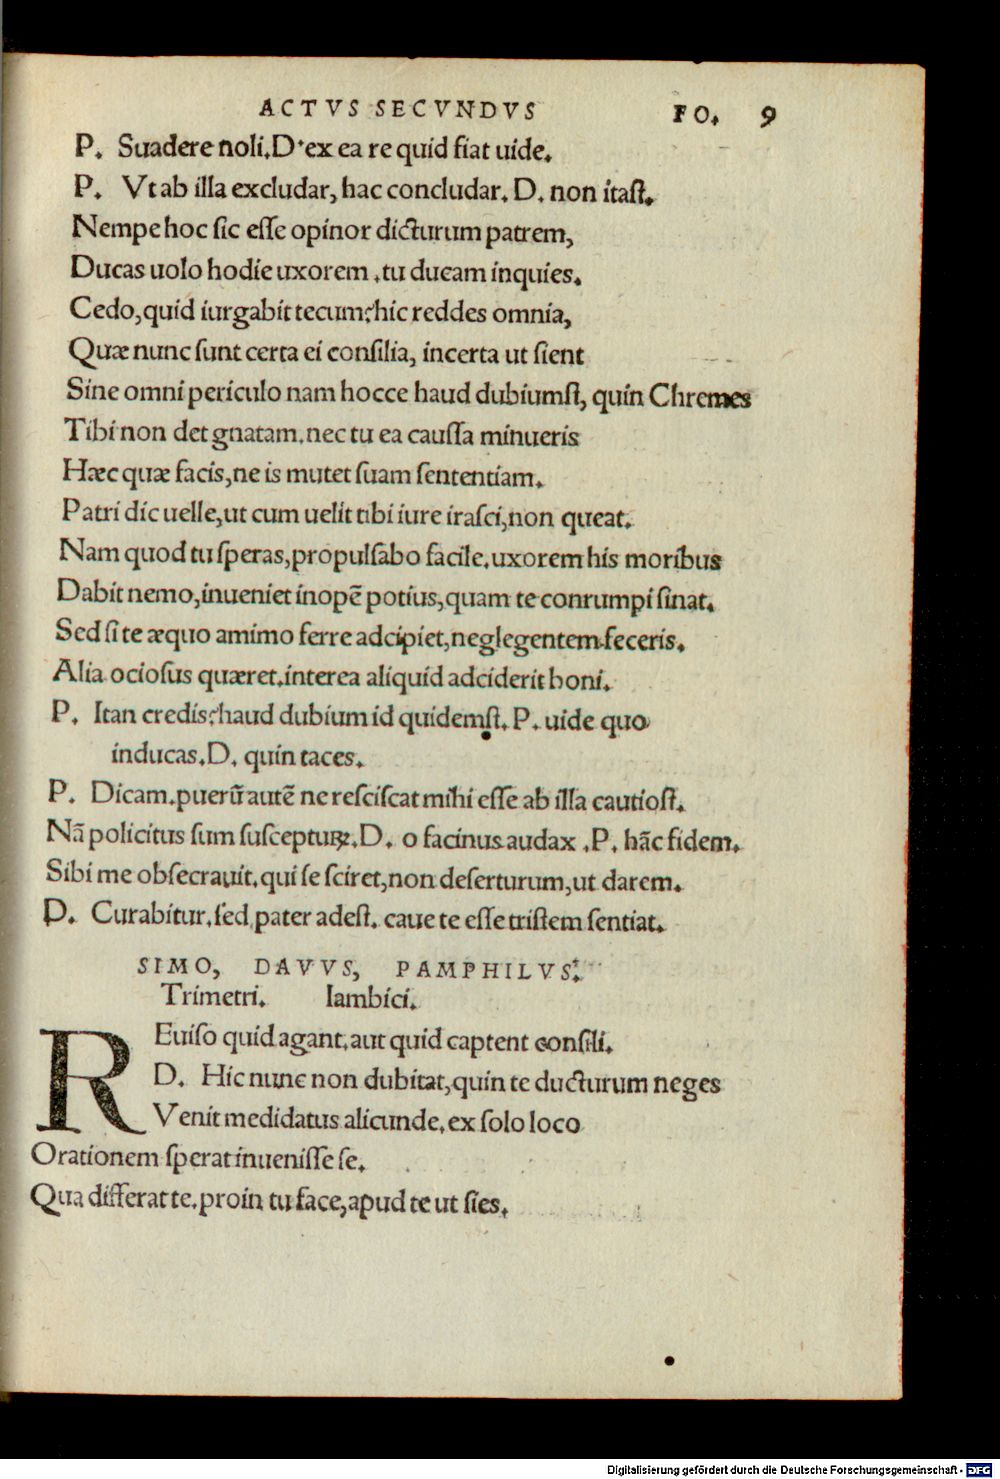 ACTVS SECVNDVS FO. 9
P. Suadere noli. D. ex ea re quid fiat uide.
P. Vt ab illa excludar, hac concludar. D. non itaſt.
Nempe hoc ſic eſſe opinor dicturum patrem,
Ducas uolo hodie uxorem .tu ducam inquies.
Cedo, quid iurgabit tecum? hic reddes omnia,
Quæ nunc ſunt certa ei conſilia, incerta ut ſient
Sine omni periculo nam hocce haud dubiumſt, quin Chremes
Tibi non det gnatam. nec tu ea cauſſa minueris
Hæc quæ facis, ne is mutet ſuam ſententiam.
Patri dic uelle, ut cum uelit tibi iure iraſci, non queat.
Nam quod tu ſperas, propulſabo facile. uxorem his moribus
Dabit nemo, inueniet inopē potius, quam te conrumpi ſinat.
Sed ſi te æquo amimo ferre adcipiet, neglegentem feceris.
Alia ocioſus quæret. interea aliquid adciderit boni.
P. Itan credis? haud dubium id quidemſt. P. uide quo
inducas. D. quin taces.
P. Dicam. puerū autē ne reſciſcat mihi eſſe ab illa cautioſt.
Nā policitus ſum ſuſcepturꝝ. D. o facinus audax .P. hāc fidem.
Sibi me obſecrauit. qui ſe ſciret, non deſerturum, ut darem.
D. Curabitur. ſed pater adeſt. caue te eſſe triſtem ſentiat.
SIMO, DAVVS, PAMPHILVS.
Trimetri. Iambici.
REuiſo quid agant. aut quid captent conſili.
D. Hic nunc non dubitat, quin te ducturum neges
Venit medidatus alicunde. ex ſolo loco
Orationem ſperat inueniſſe ſe.
Qua differat te. proin tu face, apud te ut ſies.
Digitalisierung gefördert durch die Deutsche Forschungsgemeinschaft - DFG